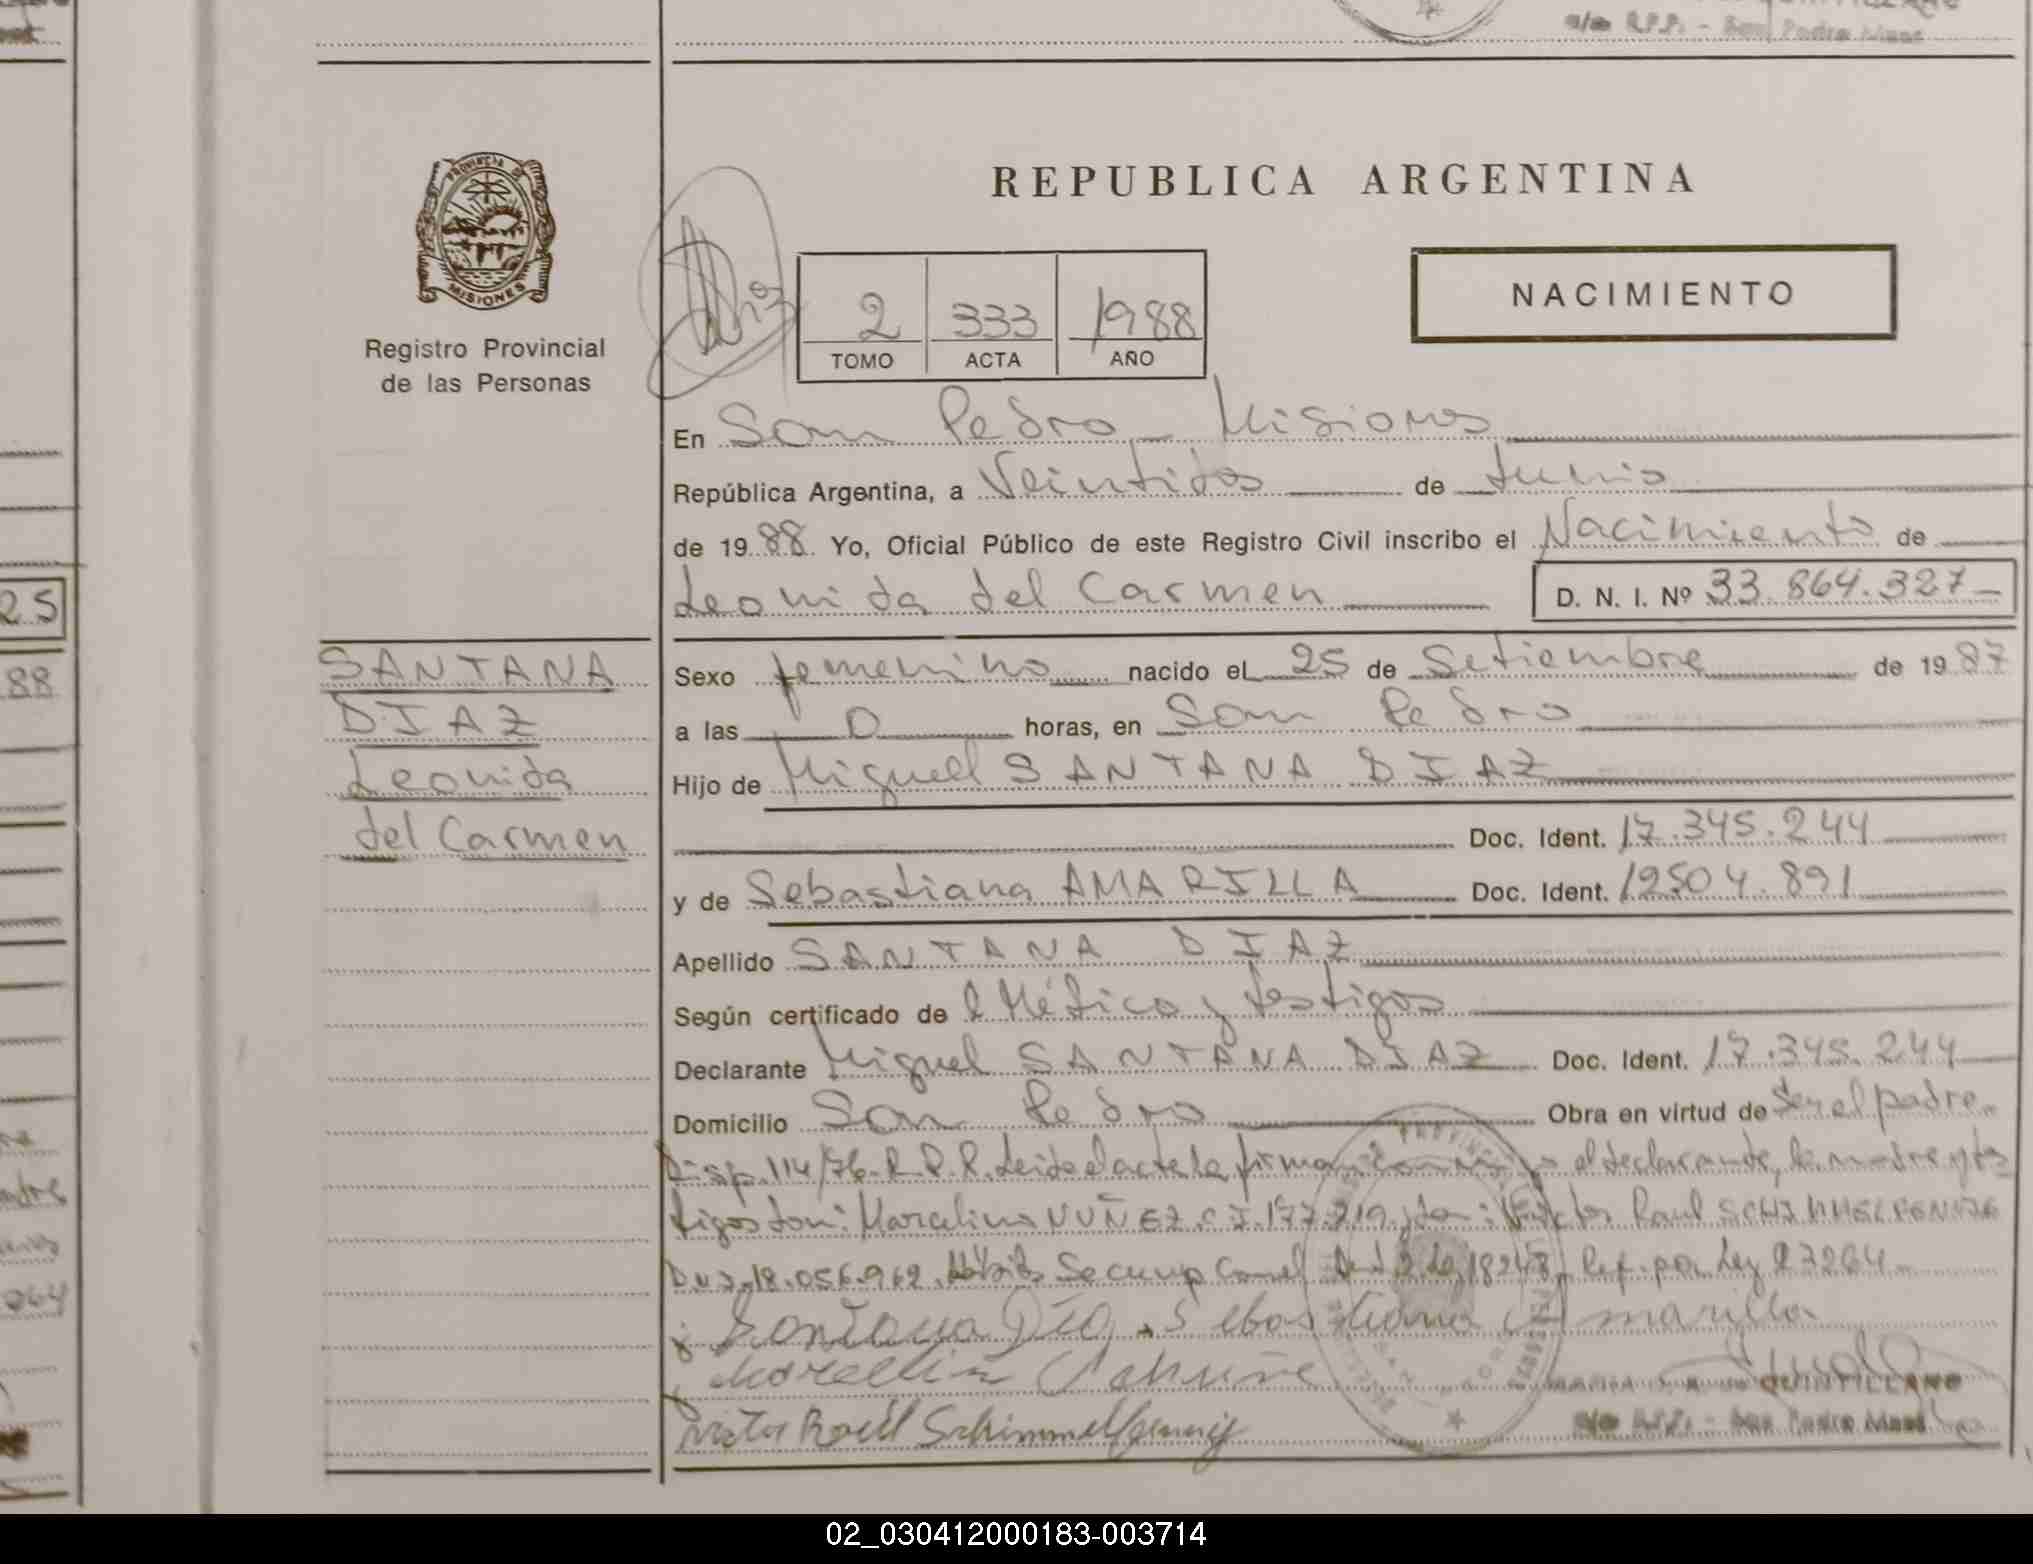 REPUBLICA ARGENTINA
PROVINCIA DE
MISIONES
Registro Provincial
de las Personas
2 333 1988
TOMO ACTA AÑO
NACIMIENTO
En San Pedro - Misiones
República Argentina, a Veintidos de Junio
de 1988. Yo, Oficial Público de este Registro Civil inscribo el Nacimiento de
Leonida del Carmen D. N. I. Nº 33.864.327
SANTANA
DIAZ
Leonida
del Carmen
Sexo femenino nacido el 25 de Setiembre de 1987
a las 0 horas, en San Pedro
Hijo de Miguel SANTANA DIAZ
Doc. Ident. 17.345.244
y de Sebastiana AMARILLA Doc. Ident. 12504.891
Apellido SANTANA DIAZ
Según certificado de l Médico y testigos
Declarante Miguel SANTANA DIAZ Doc. Ident. 17.345.244
Domicilio San Pedro Obra en virtud de Ser el padre
Disp. 114/76-R.P.P. Leida el acta la firman conmigo el declarante, la madre y tes
tigos son: Marcelino NUÑEZ C.I. 177.219 y don: Victor Raul SCHIMMELPENNIG
D.N.I. 18.056.962 2 18248 Ref. por Ley 23264
Santana Dia Sebastiana Amarilla
Victor Raúl Schimmelfennig
QUINTILLANO
R.P.P. - San Pedro Mnes
25
88
02_030412000183-003714